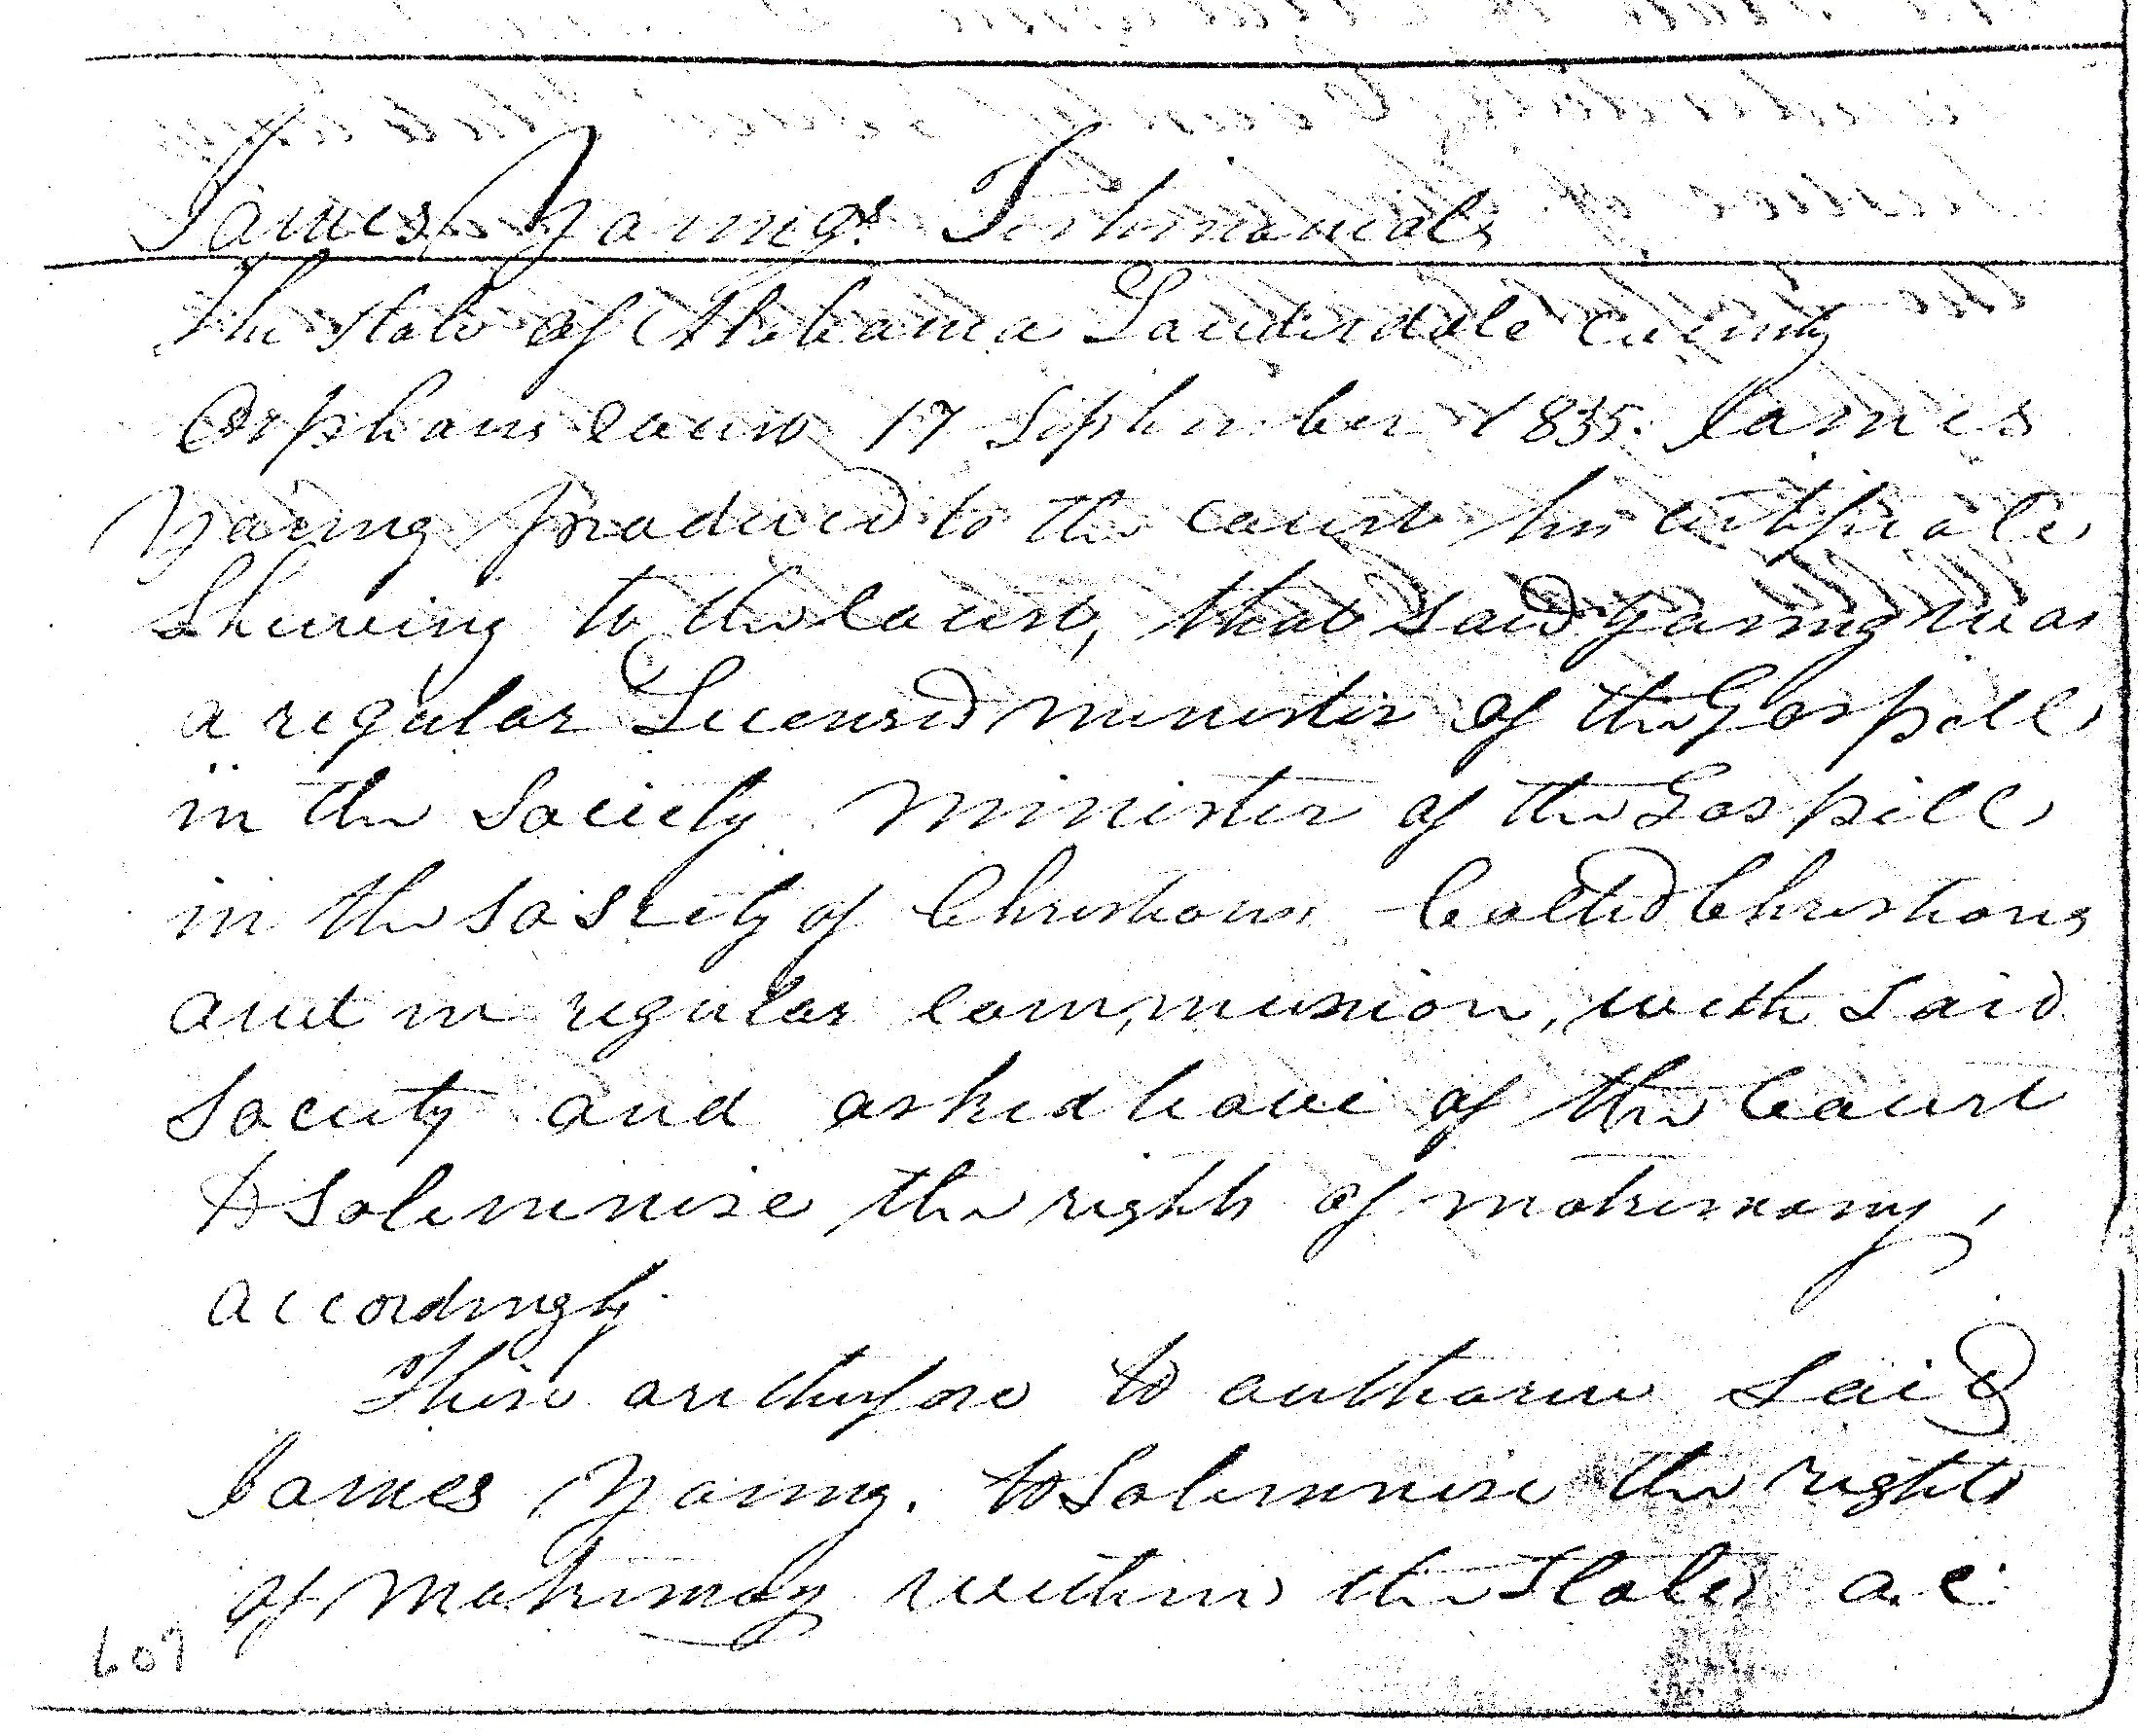 James Youngs Testimonials
The State of Alabama Lauderdale County
Orphans Court 17 September 1835. James
Young produced to the Court his certificate
Shewing to the Court, that said Young was
a regular Licensed minister of the Gospell
in the Society Minister of the Gospell
in the Sosiety of Christians Called Christians
and in regular communion, with said
Society and asked leave of the Court
to Solemnise the rights of matrimony,
accordingly.
These are therfore to authorise said
James Young. to Solemnise the rights
of Matrimoy within the State a.c.
607